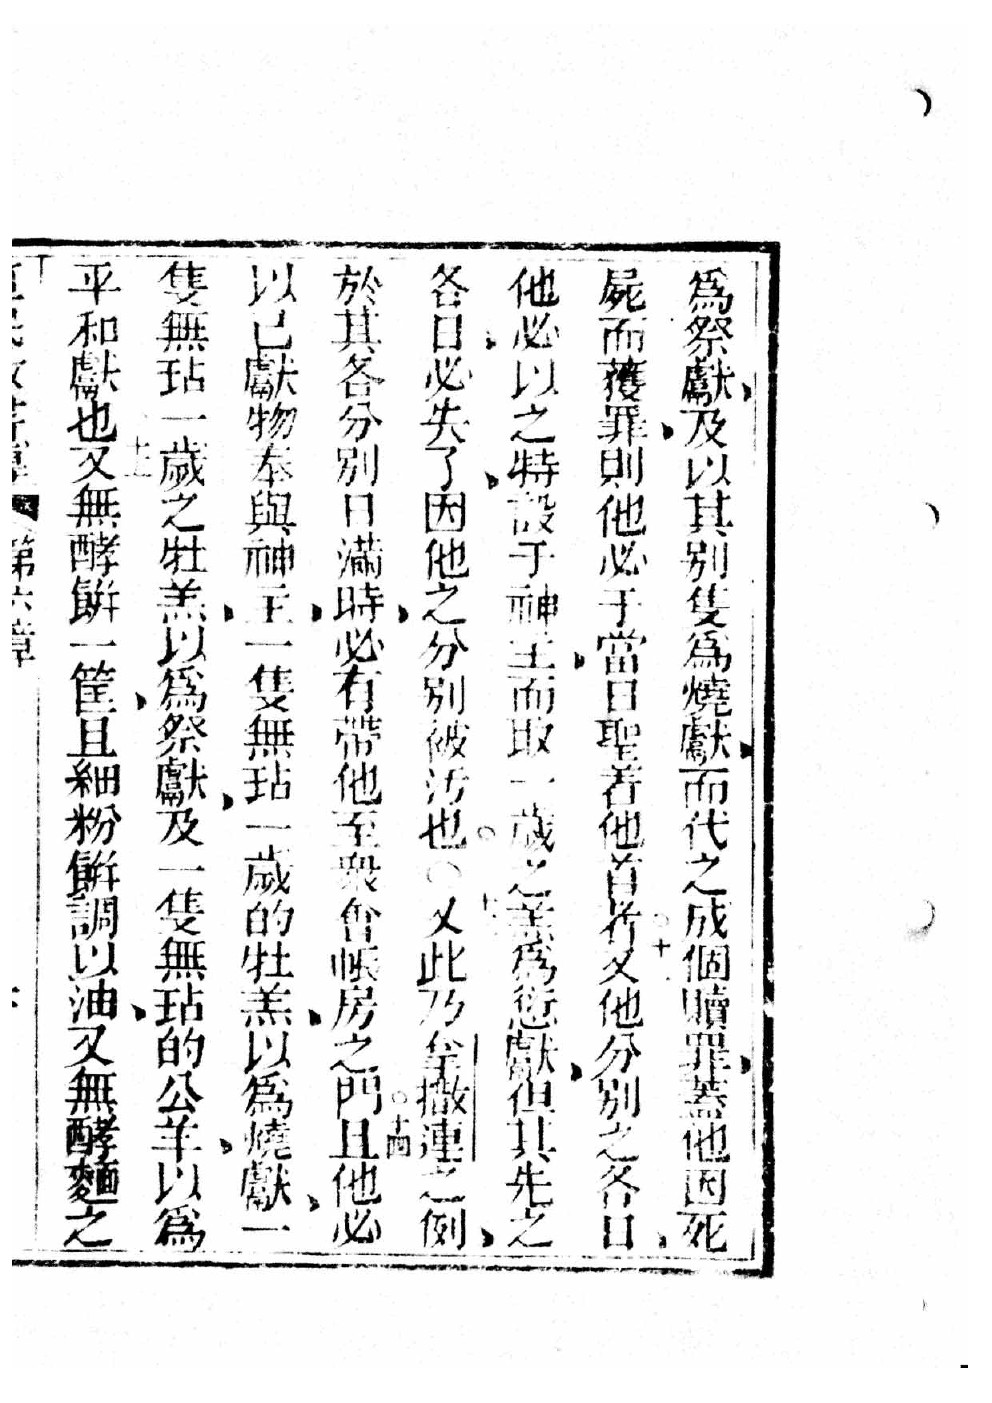 為祭獻、及以其別隻為燒獻、而代之成個贖罪、蓋他因死
屍而獲罪、則他必于當日聖着他首者○十一又他分別之各日、
他必以之特設于神主、而取一歲之羔為愆獻、但其先之
各日、必失了、因他之分別被汚也○○又此乃拿撒連之例、
於其各分別日滿時、必有帶他至衆會帳房之門○十四且他必
以己獻物奉與神主、一隻無玷一歲的牡羔、以為燒獻、一
隻無玷一歲之牡羔、以為祭獻、及一隻無玷的公羊、以為
平和獻也十五又無酵餅一筐、且細粉餅調以油、又無酵麵之
第六章